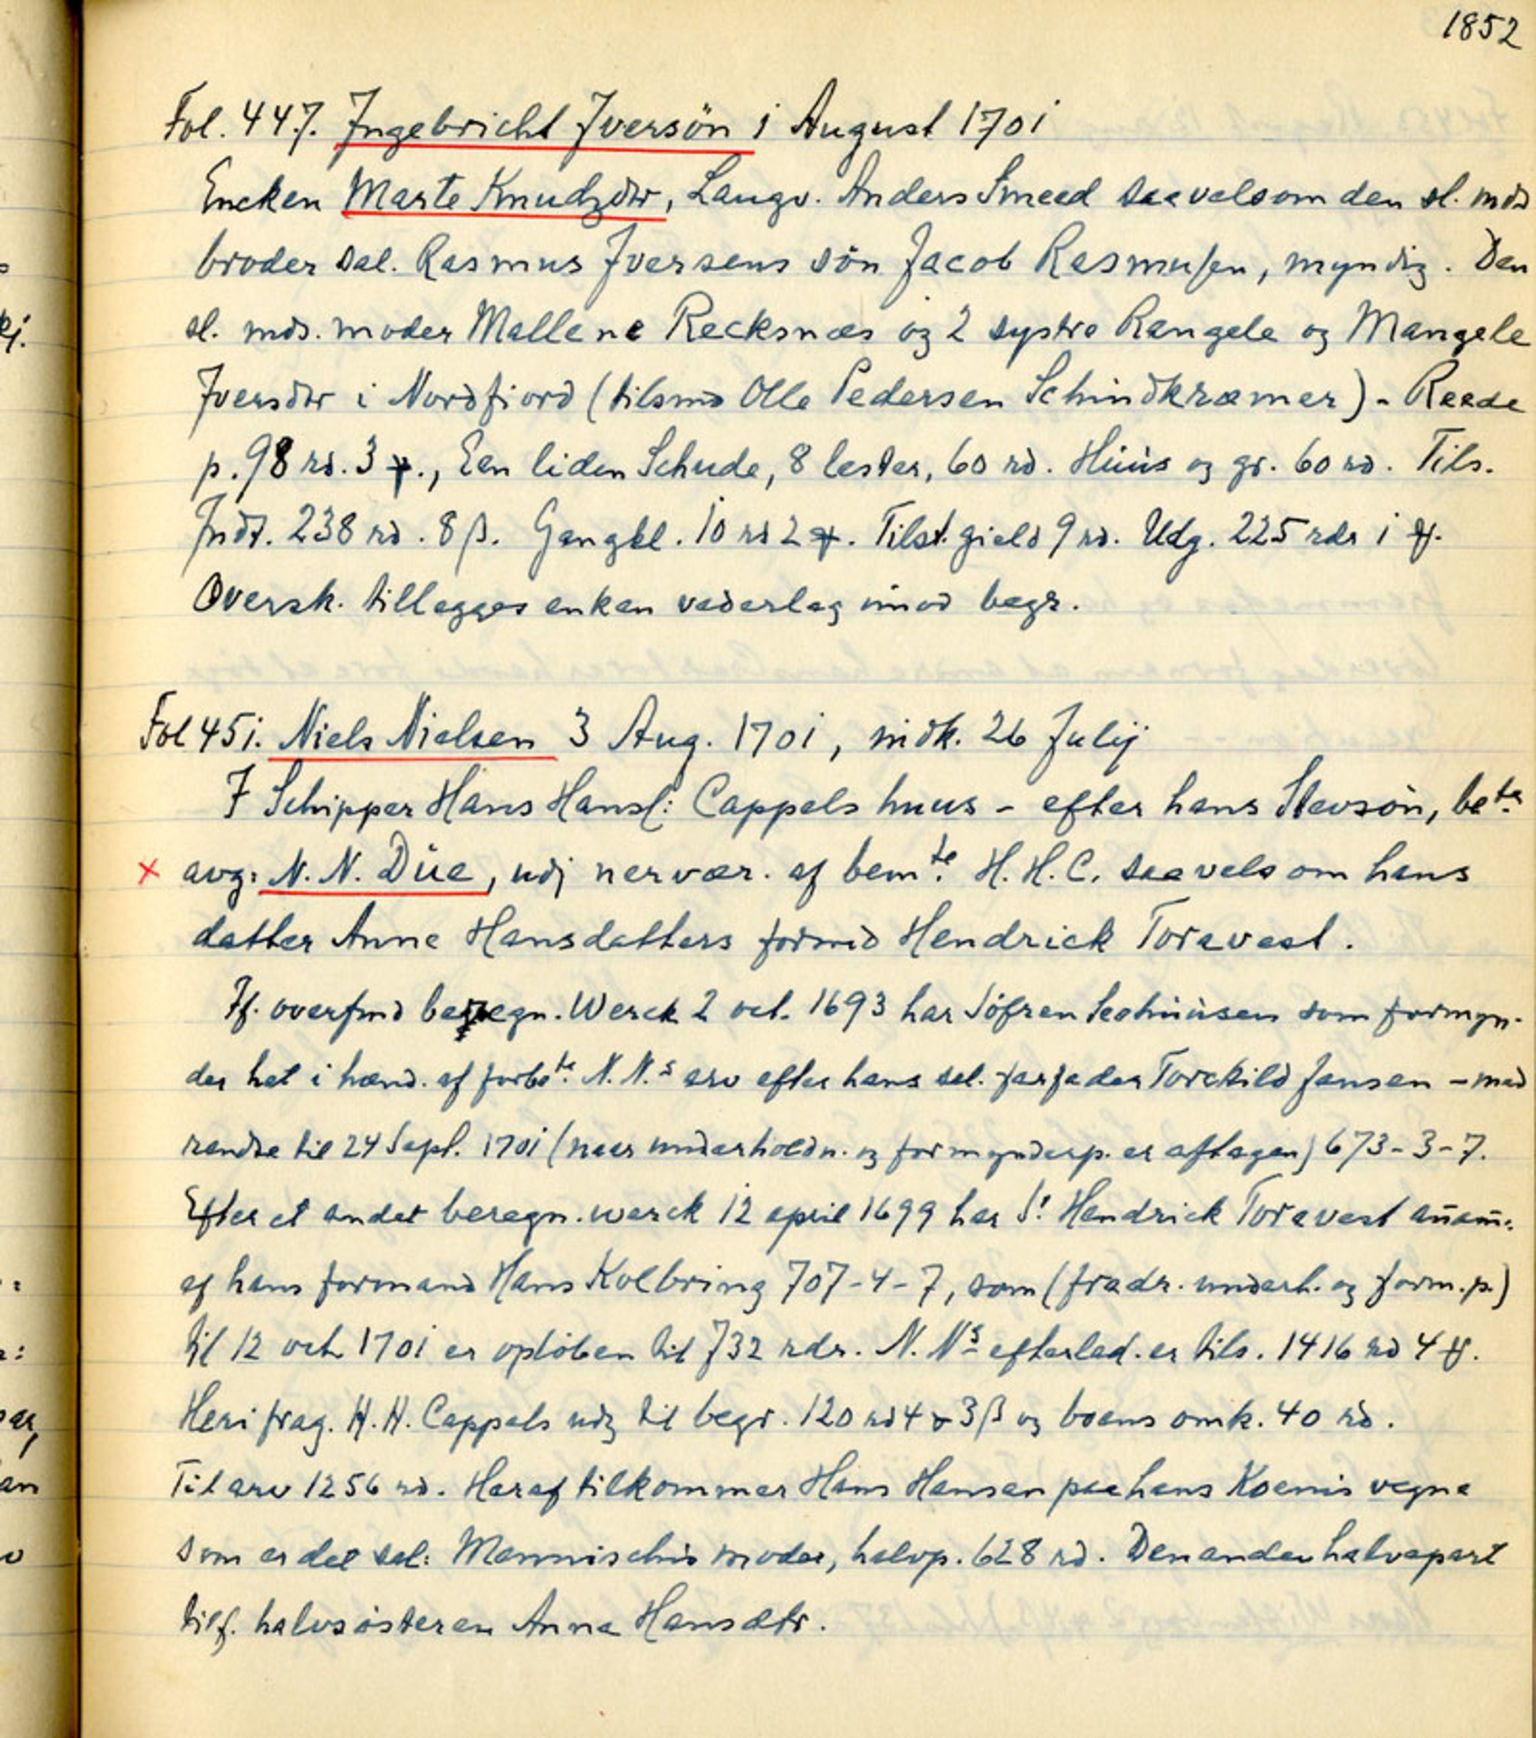 1852
Fol. 447. Ingebricht Iversön 1 August 1701
Encken Marte Knudzdtr, Laugv. Anders Smeed saavelsom den sl. mds
broder sal. Rasmus Iversens sön Jacob Rasmusen, myndig. Den
sl. mds. moder Mallene Recksnæs og 2 systre Rangele og Mangele
Iversdtr i Nordfiord (tilsmd Olle Pedersen Schindkræmer) - Reede
p. 98 rd. 3 ꝥ., Een liden Schude, 8 lester, 60 rd. Húús og gr. 60 rd. Tils.
Indt. 238 rd. 8 β. Gangkl. 10 rd 2 ꝥ. Tilst. gield 9 rd. Udg. 225 rdr 1 ꝥ.
Oversk. tillegges enken vederlag imod begr.
Fol 451. Niels Nielsen 3 Aug. 1701, nidk. 26 Julij
I Schipper Hans Hans: Cappels huus - efter hans Stevsön, bete.
x avg: N. N. Düe, udj nervær. af bemte. H. H. C. saavelsom hans
datter Anne Hansdatters formd Hendrick Toravest.
If. overfmd beregn. Werck 2 oct. 1693 har Söfren som formyn-
der hat i hænd. af forbete. N. N.s arv efter hans sal. farfader Torckild Jansen - med
rendte til 24 Sept. 1701 (naar underholdn. og formynderp. er aftagen) 673-3-7.
Efter et andet beregn. werck 12 april 1699 har Sr. Hendrick Toravest anam:
af hans formand Hans Kolbring 707-4-7, som (fradr. underh. og form. p.)
til 12 oct 1701 er oplöben til 732 rdr. N. Ns efterlad. er tils. 1416 rd 4 ꝥ.
Heri frag. H. H. Cappels udg til begr. 120 rd 4 ꝥ 3 β og boens omk. 40 rd.
Til arv 1256 rd. Heraf tilkommer Hans Hansen paa hans Koenis vegne
som er det sal: Mennischis moder, halvp. 628 rd. Den anden halvepart
tilf. halvsösteren Anna Hansdtr.